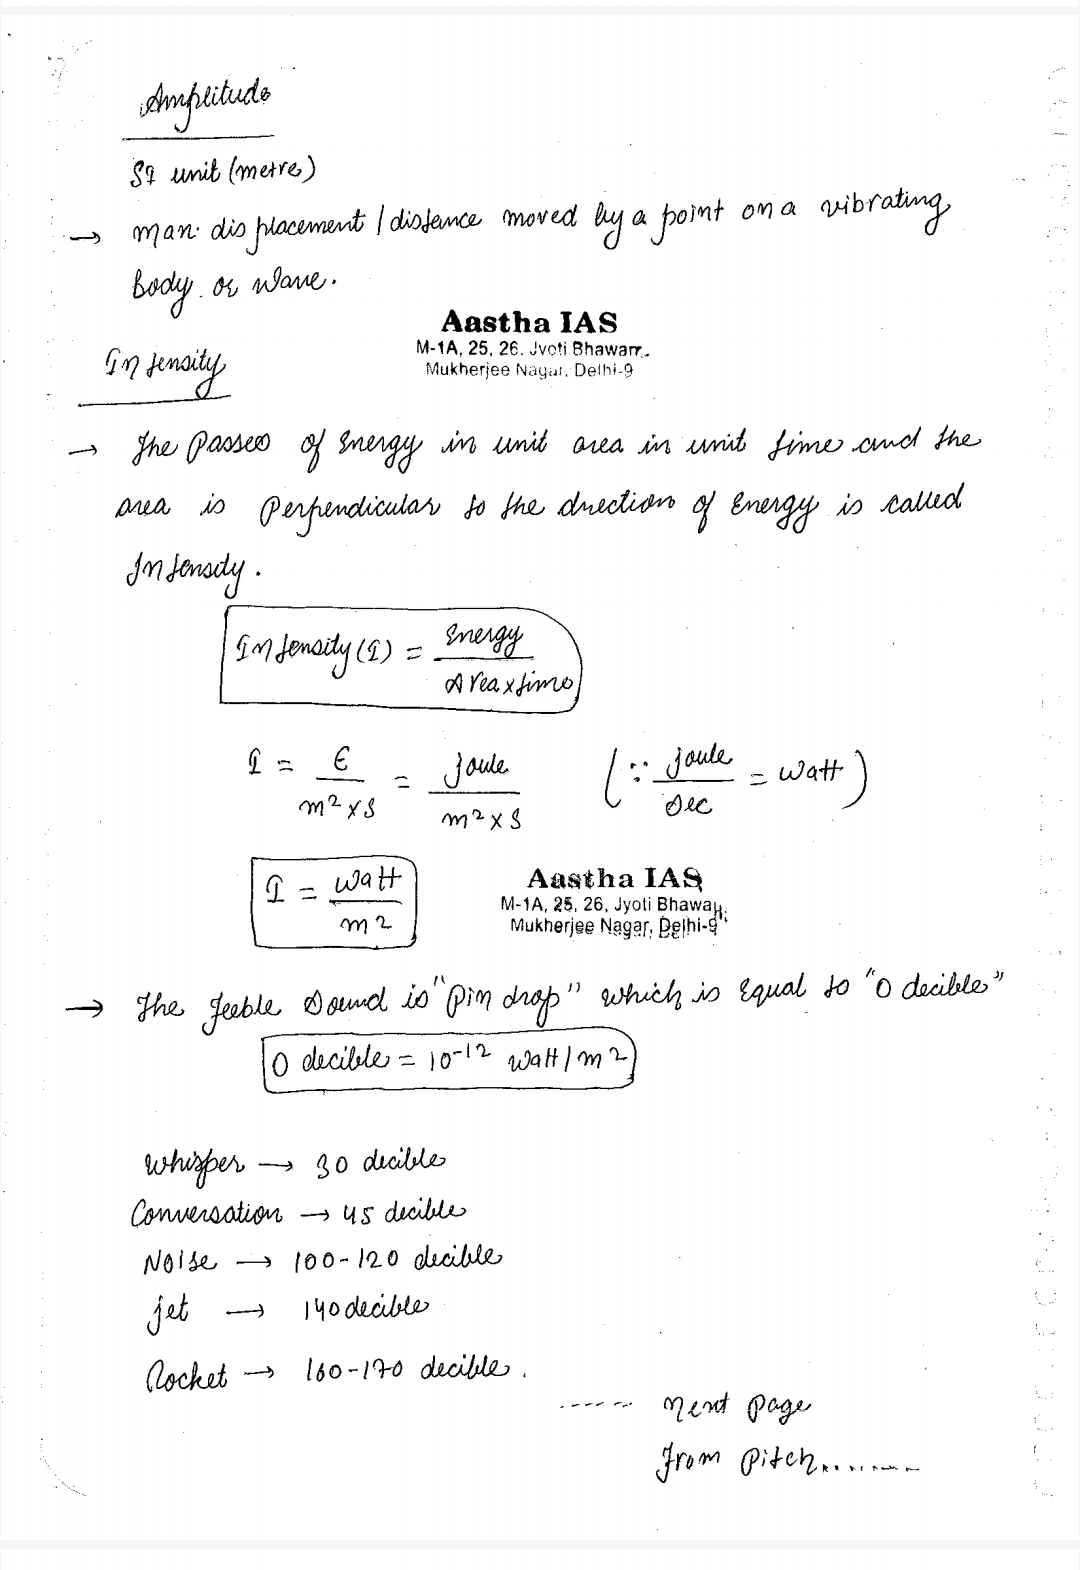 Amplitude
SI unit (metre)
→ max. displacement / distance moved by a point on a vibrating
body or wave.
Aastha IAS
M-1A, 25, 26. Jyoti Bhawan,
Mukherjee Nagar, Delhi-9
Intensity
→ The Passes of Energy in unit area in unit time and the
area is Perpendicular to the direction of Energy is called
Intensity.
Intensity (I) = Energy / Area x time
I = E / m² x s = joule / m² x s (∵ joule / sec = watt)
I = watt / m²
Aastha IAS
M-1A, 25, 26, Jyoti Bhawan,
Mukherjee Nagar, Delhi-9
→ The feeble sound is "Pin drop" which is Equal to "0 decible"
0 decible = 10⁻¹² watt/m²
Whisper → 30 decible
Conversation → 45 decible
Noise → 100-120 decible
jet → 140 decible
Rocket → 160-170 decible.
------ next page
From Pitch........